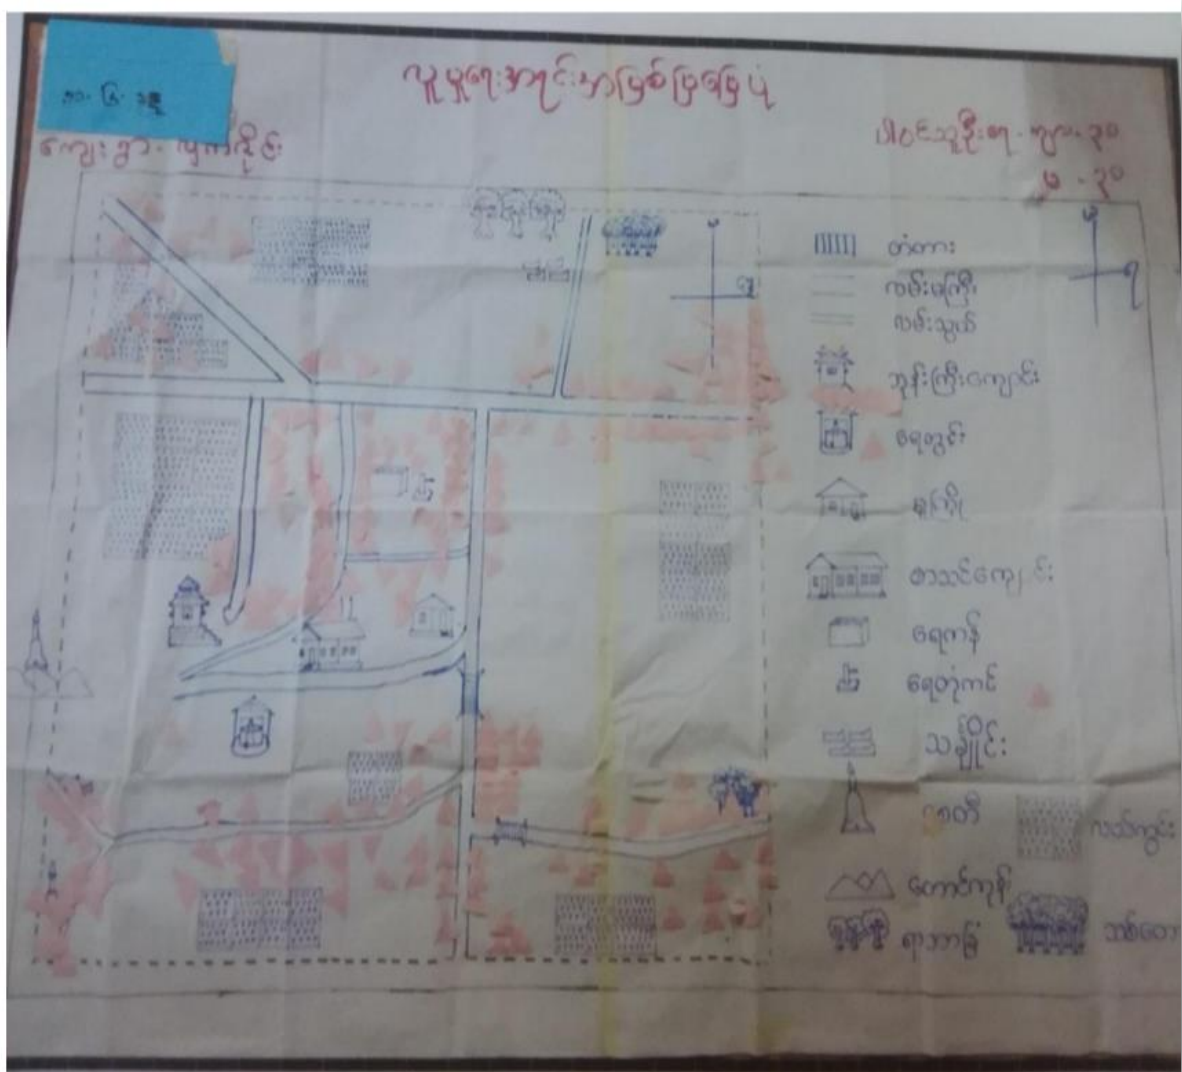 လူမှုရေးအရင်းအမြစ်ပြမြေပုံ
ကျေးရွာ-
ပါဝင်သူဦးရေ - ကျား - ၃၀
မ - ၃၀
မ
ရ
မ
ရ
တံတား
လမ်းမကြီး
လမ်းသွယ်
ဘုန်းကြီးကျောင်း
ရေတွင်း
မူကြို
စာသင်ကျောင်း
ရေကန်
ရေတုံကင်
သင်္ချိုင်း
စေတီ
လယ်ကွင်း
တောင်ကုန်း
ရာဘာခြံ
သစ်တော